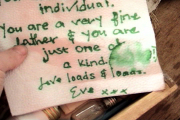 individual.
You are a very fine
father & you are
just one of
a kind.
Love loads & loads.
Eve xxx